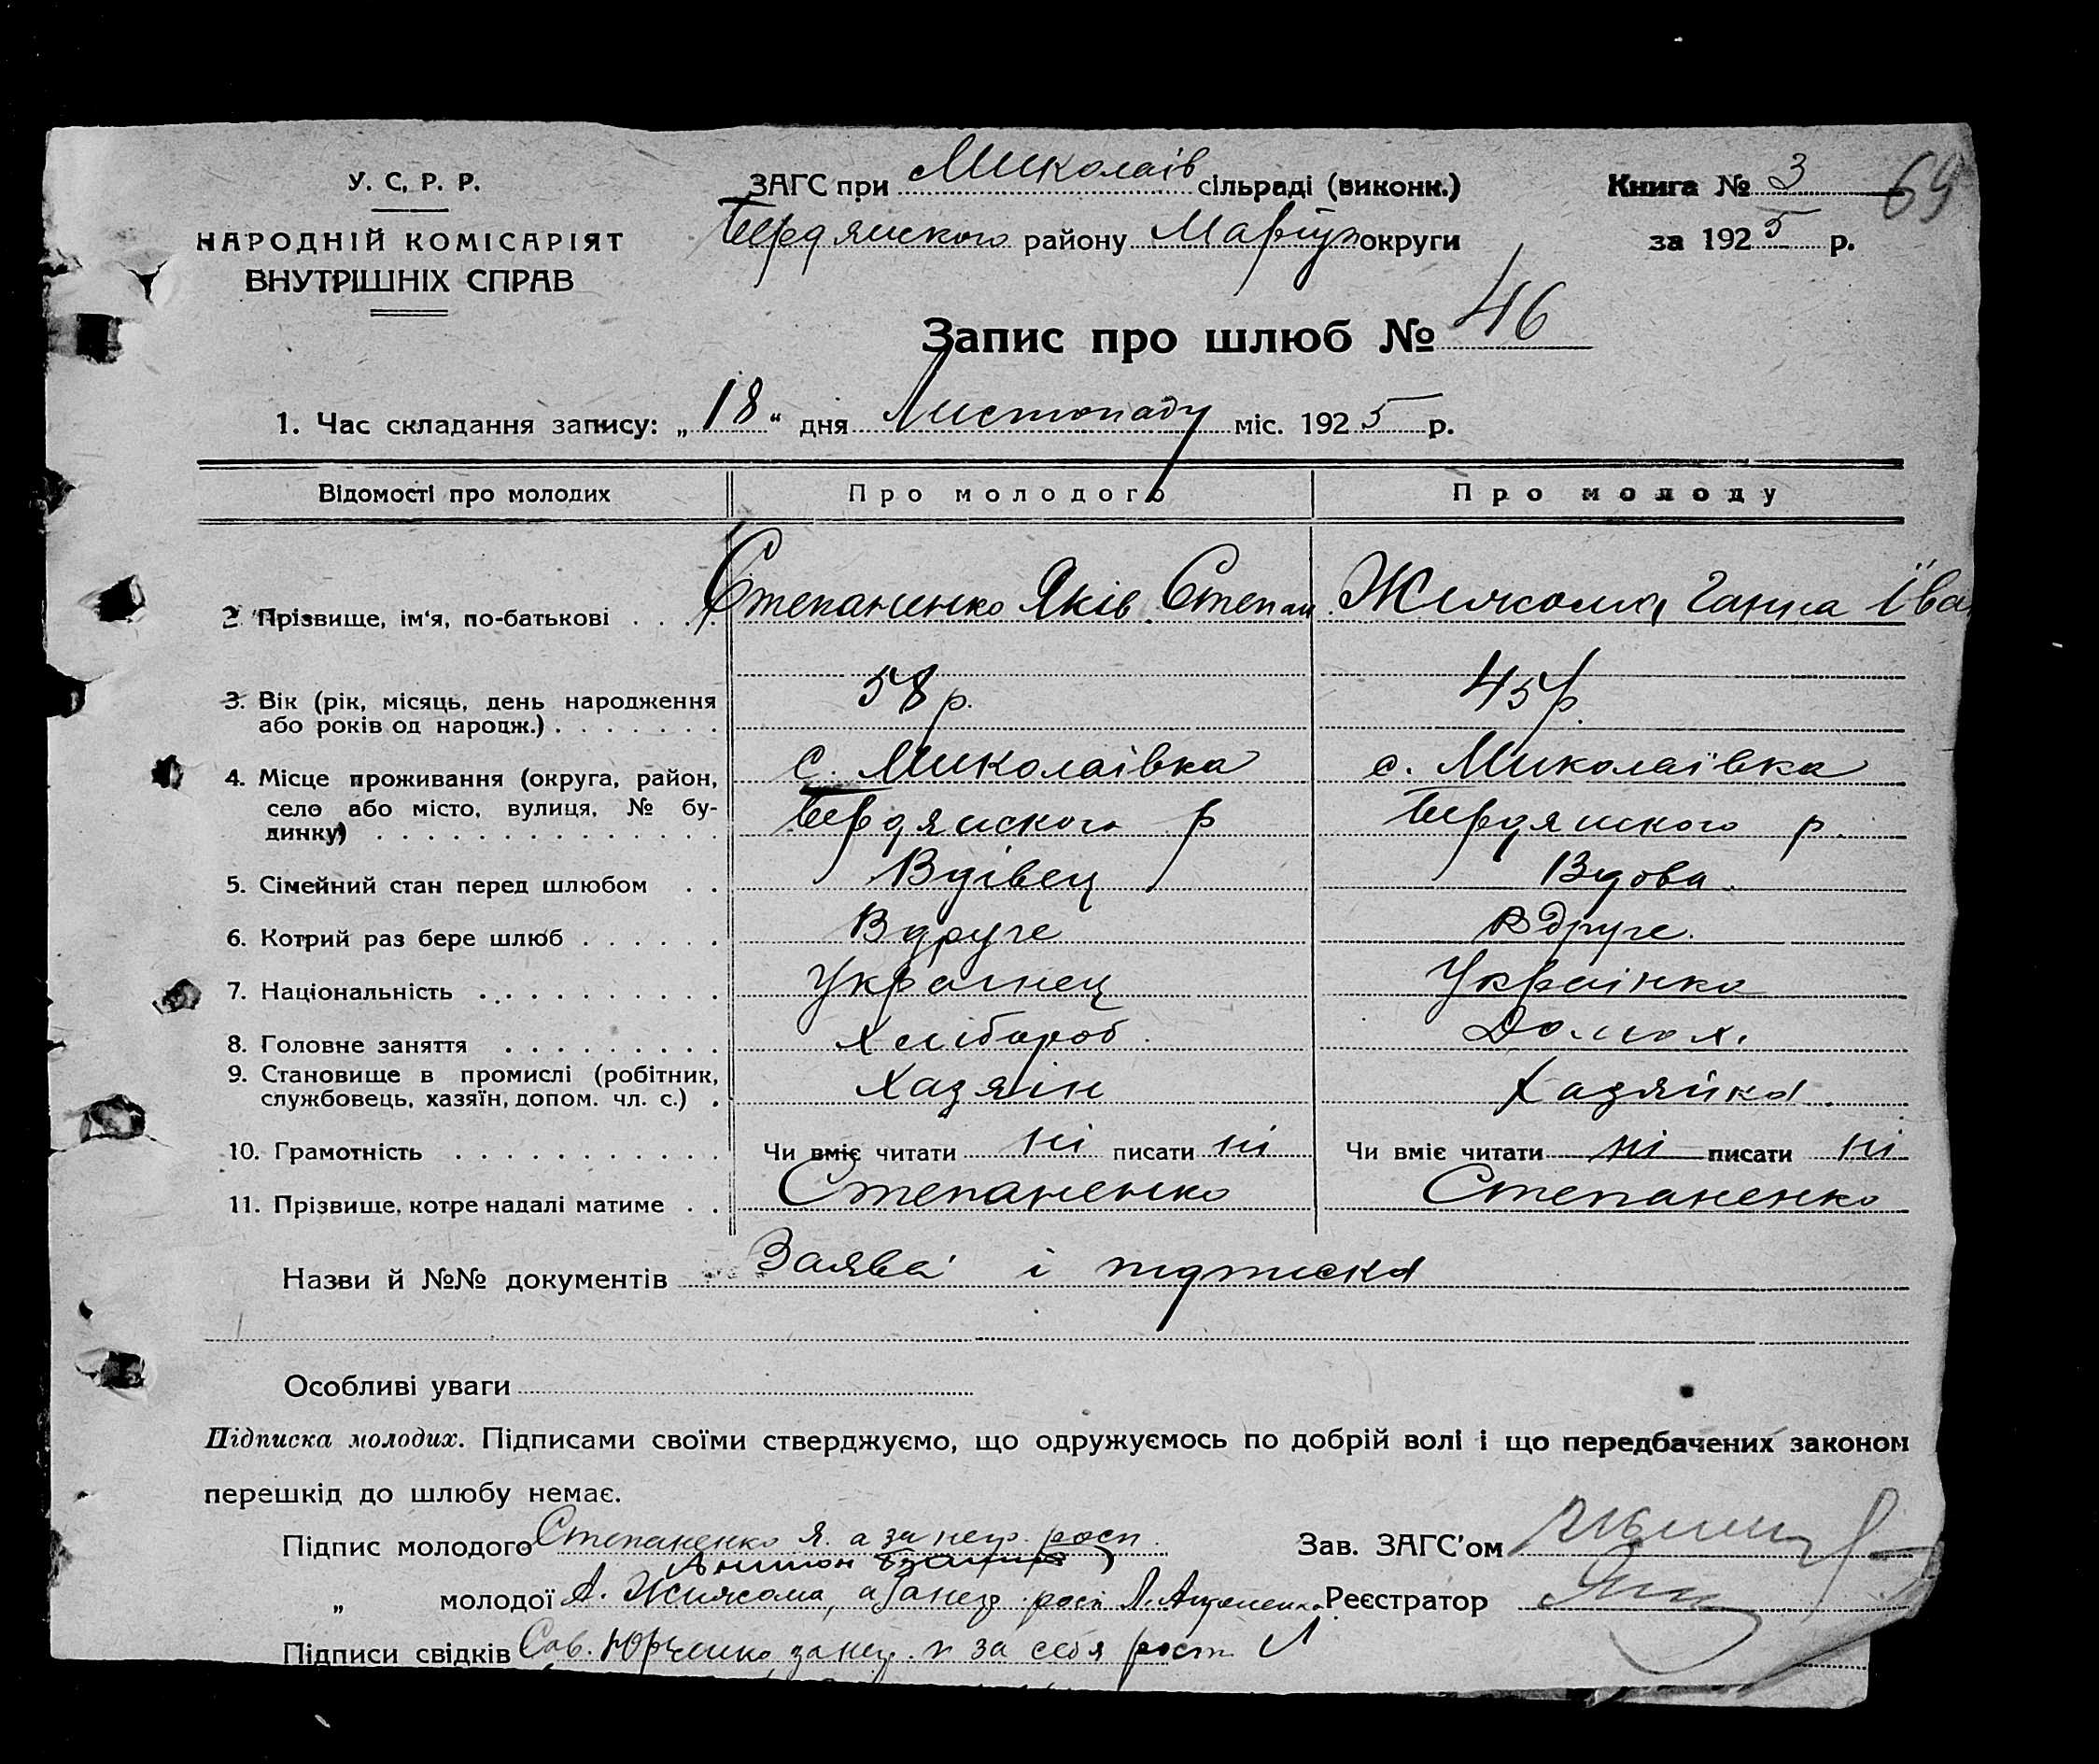 У. С. Р. Р.
НАРОДНІЙ КОМІСАРІЯТ
ВНУТРІШНІХ СПРАВ
ЗАГС при Миколаїв сільраді (виконк.)
Бердянского району Маріуп округи
Книга № 3
69
за 1925 р.
Запис про шлюб № 46
1. Час складання запису: „18“ дня Листопаду міс. 1925 р.
Відомості про молодих Про молодого Про молоду
2. Прізвище, ім'я, по-батькові . . . . Степаненко Яків Степан. Ганна Іва
3. Вік (рік, місяць, день народження або років од народж.) . . . . . . . 58 р. 45 р.
4. Місце проживання (округа, район, село або місто, вулиця, № будинку) . . . . . . . . . . . . с. Миколаівка Бердянского р с. Миколаївка Бердянского р.
5. Сімейний стан перед шлюбом . . Вдівец Вдова.
6. Котрий раз бере шлюб . . . . . . Вдруге Вдруге.
7. Національність . . . . . . . . . . Українец Українка
8. Головне заняття . . . . . . . . . Хлібороб. Домох.
9. Становище в промислі (робітник, службовець, хазяїн, допом. чл. с.) . Хазяїн Хазяйка.
10. Грамотність . . . . . . . . . . . Чи вміє читати ні писати ні Чи вміє читати ні писати ні
11. Прізвище, котре надалі матиме . . Степаненко Степаненко
Назви й №№ документів Заява і підписка
Особливі уваги
Підписка молодих. Підписами своїми стверджуємо, що одружуємось по добрій волі і що передбачених законом
перешкід до шлюбу немає.
Підпис молодого Степаненко Я. а за негр. росп.
Антон
Зав. ЗАГС'ом
„ молодої А. а за негр росп Реєстратор
Підписи свідків Сав. Юрченко за негр. и за себя росп.